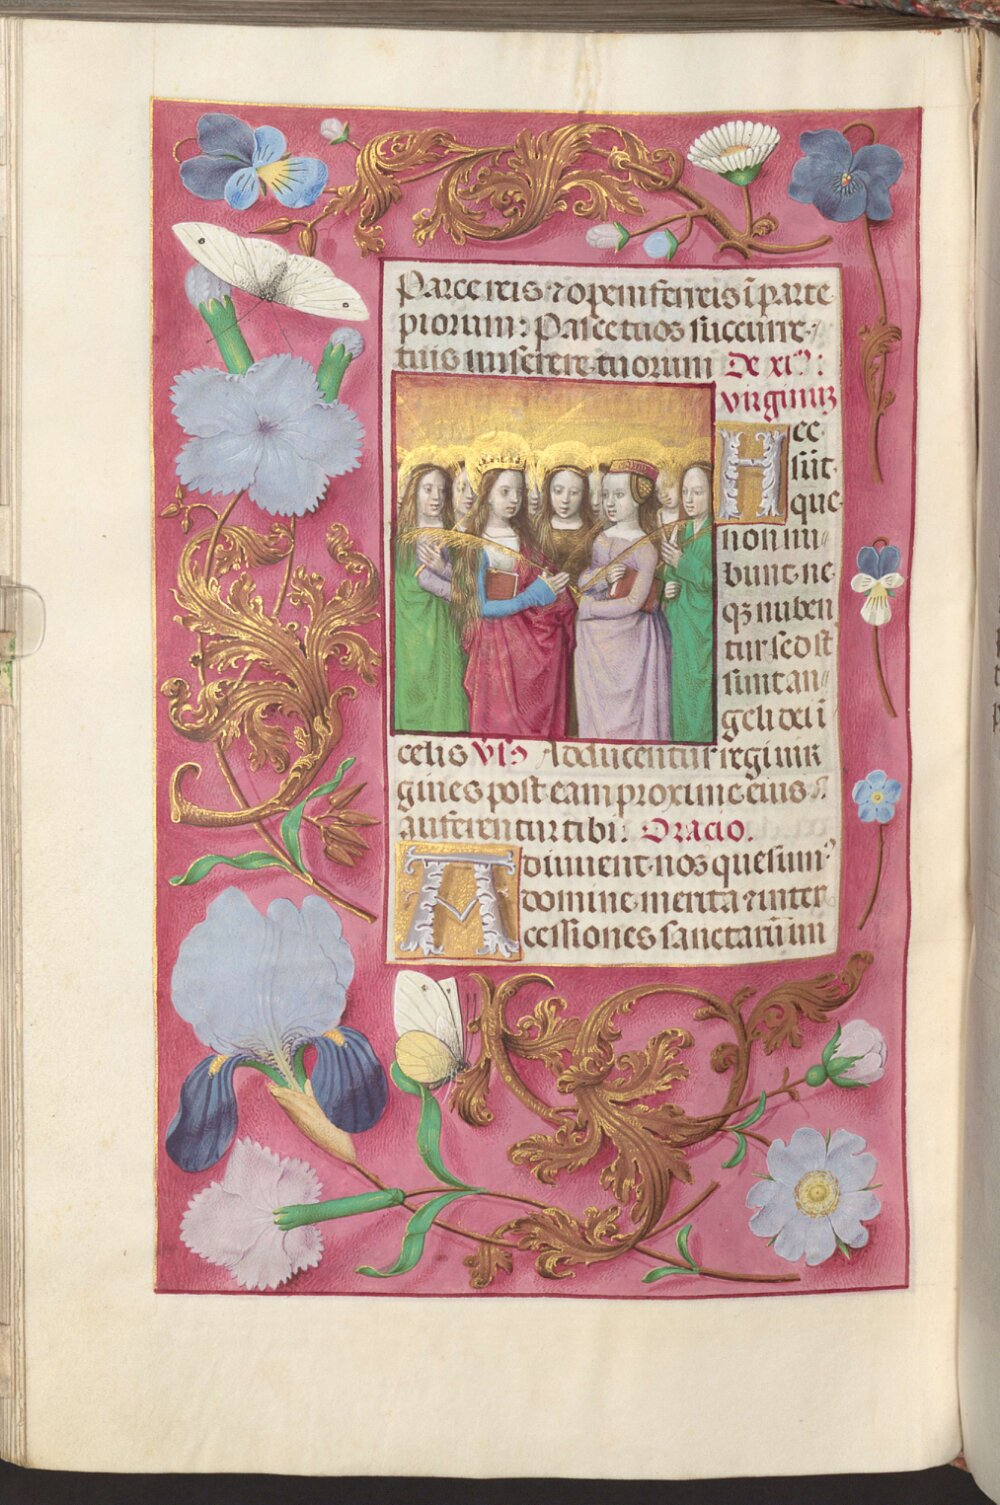 Parce reis ⁊ opem fer reis ī parte
piorum: Pasce tuos succurre
tuis miserere tuorum De xi.
virginib;
Hec
sūt
que
non nu
bunt ne
q; nuben
tur sed st̄
sunt an
geli dei ī
celis Vs̄ Adducentur regi vir
gines post eam proxime eius
auferentur tibi. Oracio.
Adiuuent nos quesum̄
domine merita ⁊ inter
cessiones sanctarū un